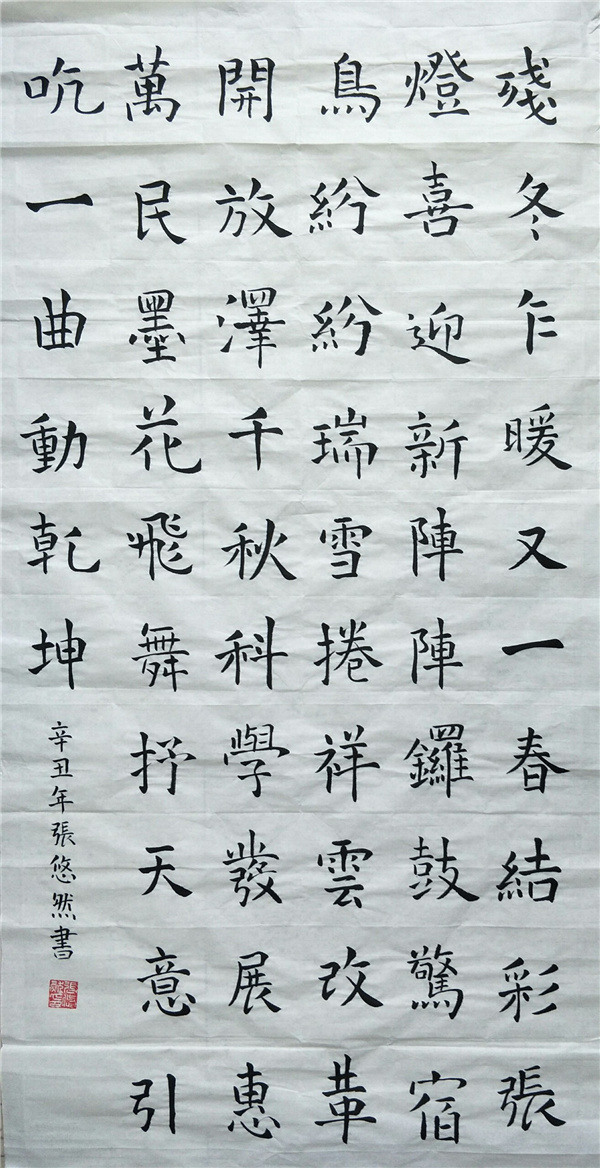 殘冬乍暖又一春結彩張
燈喜迎新陣陣鑼鼓驚宿
鳥紛紛瑞雪捲祥雲改革
開放澤千秋科學發展惠
萬民墨花飛舞抒天意引
吭一曲動乾坤
辛丑年張悠然書